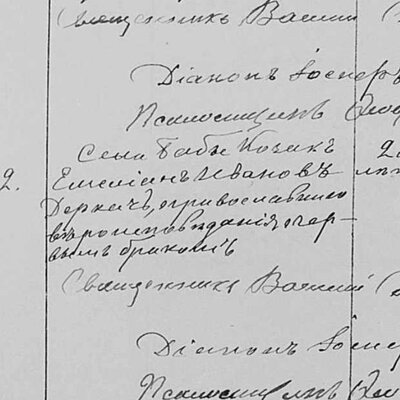 Священникъ Василій
Діаконъ Іосифъ
Псаломщикъ
Села Бабы Козакъ
2. Емеліанъ Ивановъ
Деркачъ, православнаго
вѣроисповѣданія, пер-
вымъ бракомъ
Священникъ Василій
Діаконъ
Псаломщикъ